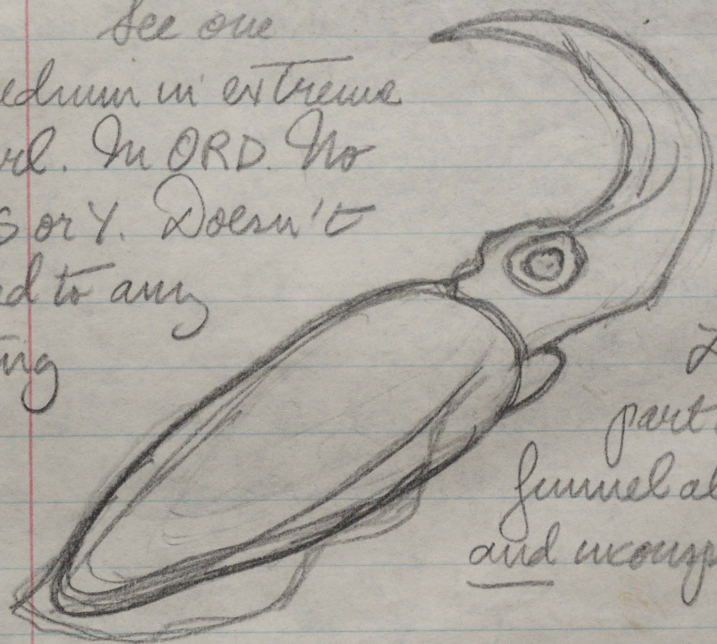 See one
edrum in extreme
rl. In ORD. No
S or Y. Doesn't
ed to any
ing
L
part
funnel al
and incomp